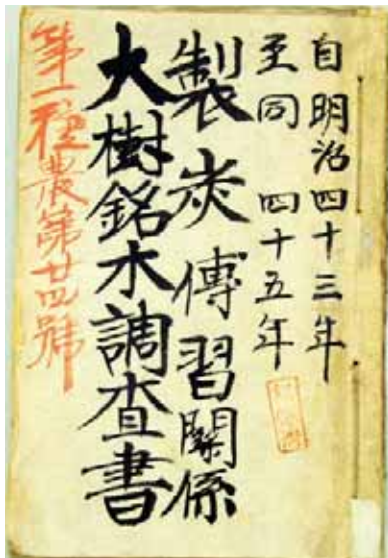 自明治四十三年
至同四十五年
製炭傳習關係
大樹銘木調査書
第一種農第廿四號